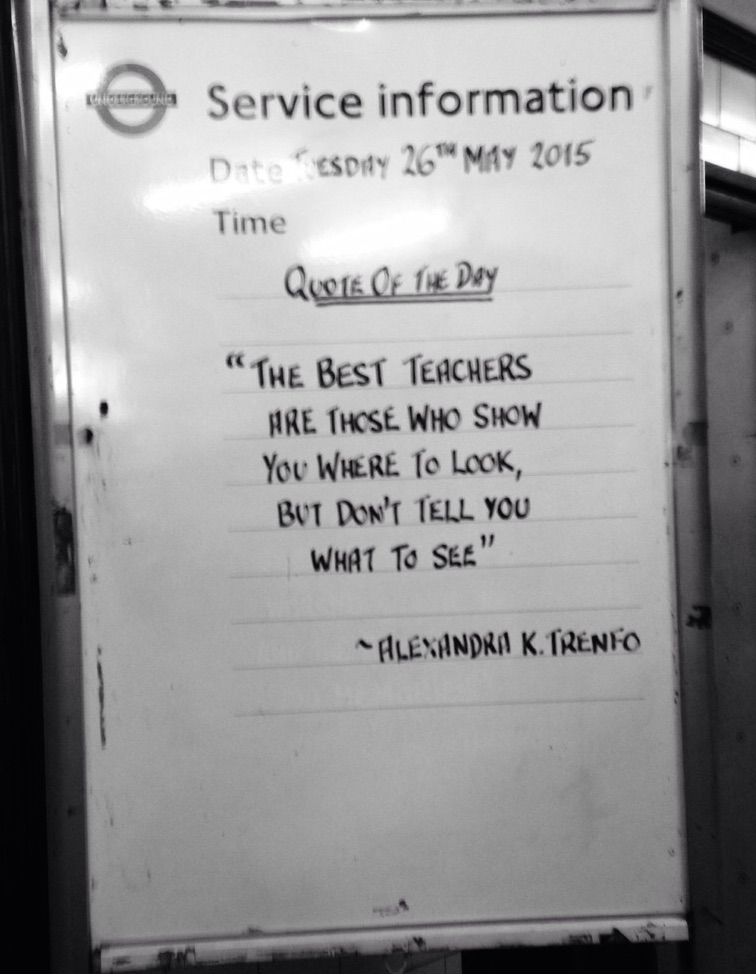 UNDERGROUND
Service information
Date TUESDAY 26TH MAY 2015
Time
QUOTE OF THE DAY
"THE BEST TEACHERS
ARE THOSE WHO SHOW
YOU WHERE TO LOOK,
BUT DON'T TELL YOU
WHAT TO SEE"
~ALEXANDRA K. TRENFO